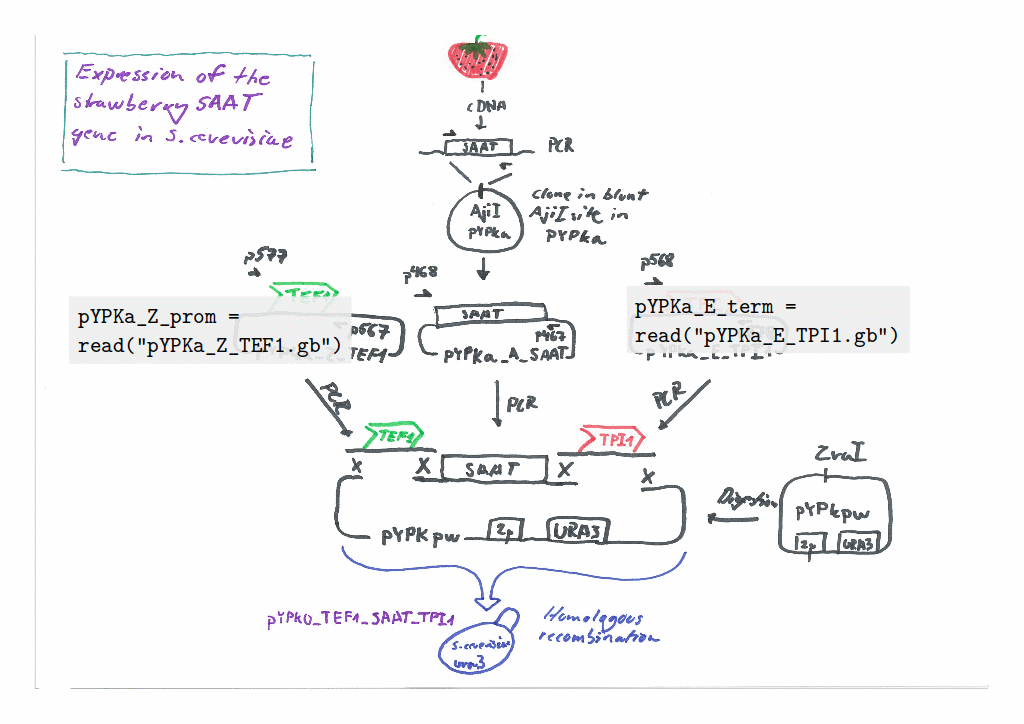 Expression of the
strawberry SAAT
gene in S. cerevisiae
cDNA
SAAT
PCR
AjiI
pYPKa
Clone in blunt
AjiI site in
pYPKa
p577
p468
p568
TEF1
pYPKa_Z_prom =
read("pYPKa_Z_TEF1.gb")
p667
TEF1
SAAT
p467
pYPKa_A_SAAT
pYPKa_E_term =
read("pYPKa_E_TPI1.gb")
PCR
PCR
PCR
TEF1
TPI1
X
X
SAAT
X
X
ZraI
Digestion
pYPKpw
2µ
URA3
pYPKpw
2µ
URA3
pYPK0_TEF1_SAAT_TPI1
Homologous
recombination
S. cerevisiae
ura3